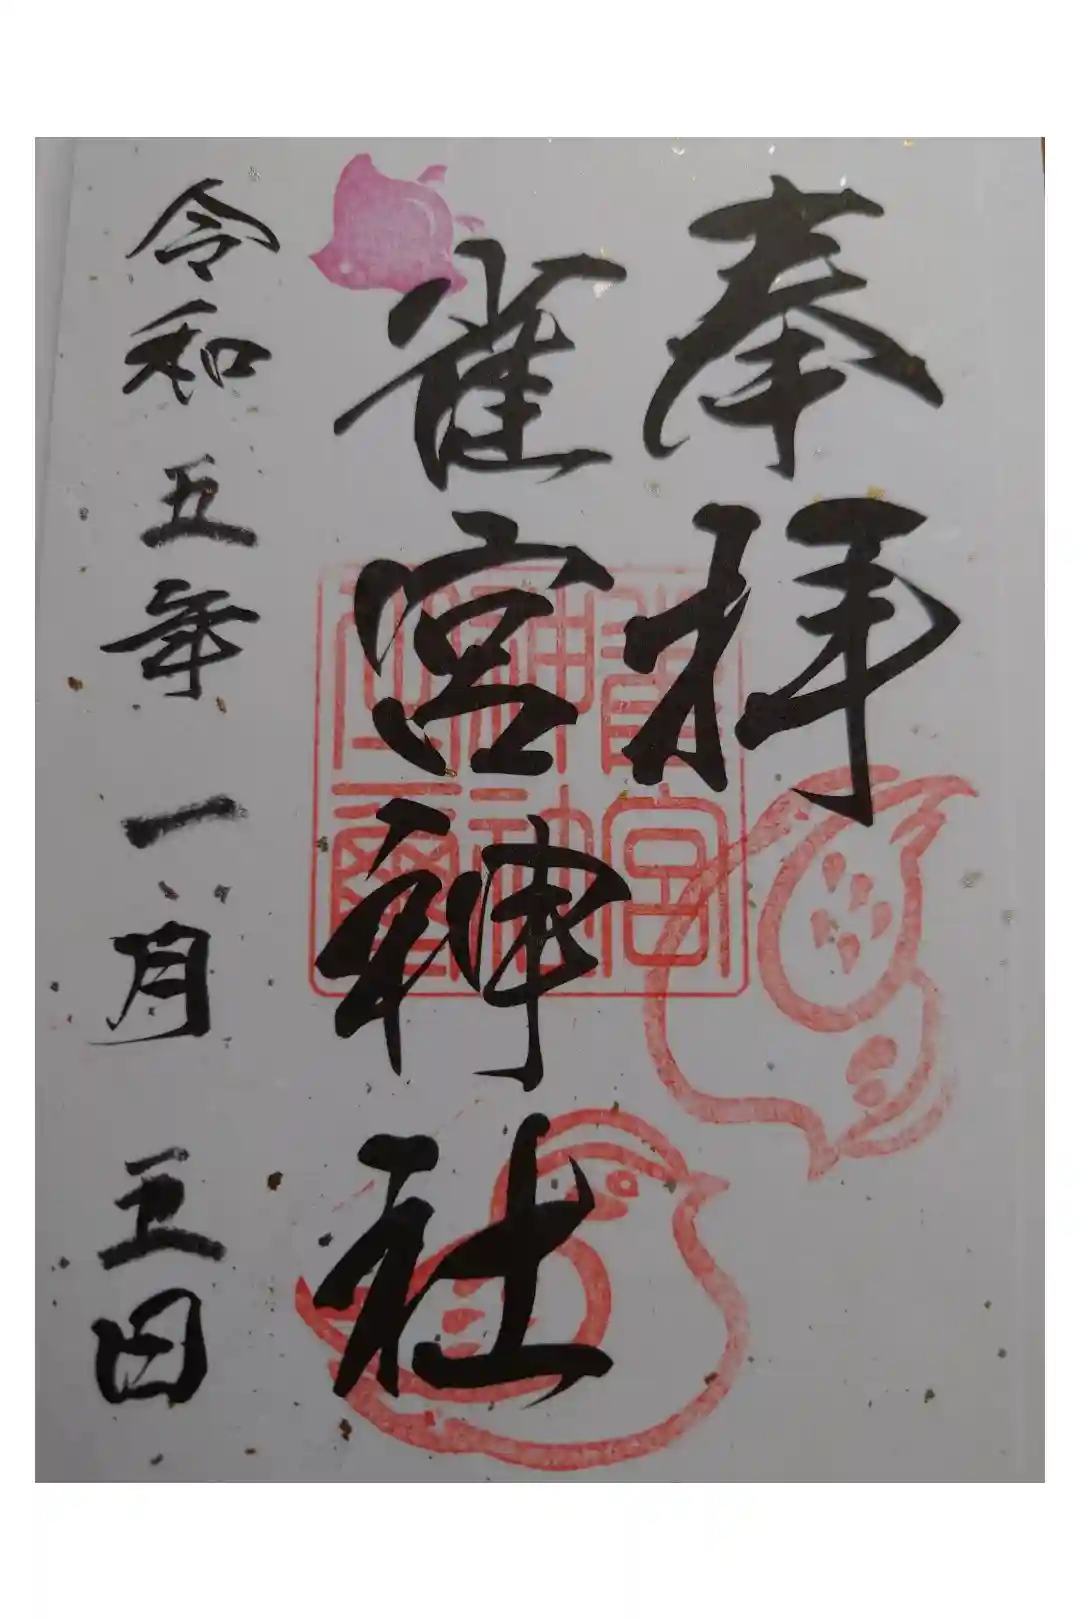 奉拝
雀宮神社
令和五年一月 日
雀宮
神社
之璽